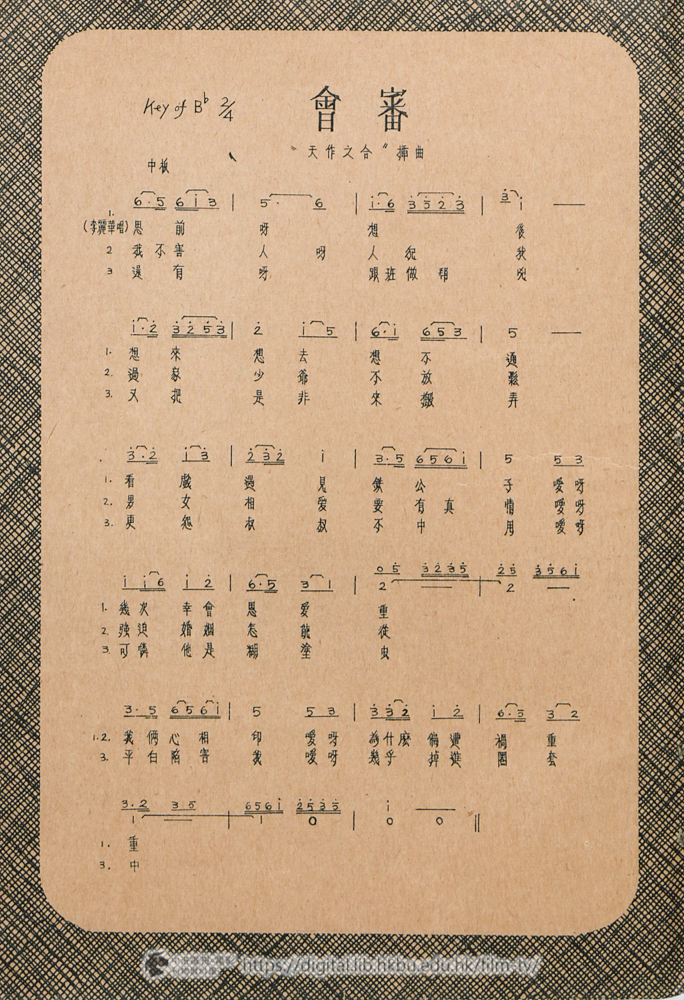 會審
Key of B♭ 2/4
"天作之合"插曲
中板
6·5 6i3 | 5· 6 | i·6 3523 | 3i —
(李麗華唱)
1. 思 前 呀 想 後
2 我 不 害 人 呀 人 犯 我
3 還 有 呀 跟 班 做 幫 兇
i·2 3253 | 2 i5 | 6·i 653 | 5 —
1. 想 來 想 去 想 不 通
2. 過 家 少 爺 不 放 鬆
3. 又 把 是 非 來 搬 弄
3·2 i3 | 232 i | 3·5 656i | 5 53
1. 看 戲 遇 見 公 子 噯 呀
2. 男 女 相 愛 要 有 真 情 噯 呀
3. 更 怨 叔 叔 不 中 用 噯 呀
i i6 i2 | 6·5 31 | 05 3235 | 25 3561
2 — 2 —
1. 幾 次 幸 會 恩 愛 重
2. 強 迫 婚 姻 怎 能 從
3. 可 憐 他 是 糊 塗 虫
3·5 656i | 5 53 | 332 i2 | 6·5 32
1.2. 我 倆 心 相 印 噯 呀 為 什 麼 偏 遭 禍 重
3. 平 白 陷 害 我 噯 呀 幾 乎 掉 進 圈 套
3·2 35 | 656i 2535 | i —
1 — 1 0 0 0
1. 重
3. 中
https://digital.lib.hkbu.edu.hk/film-tv/